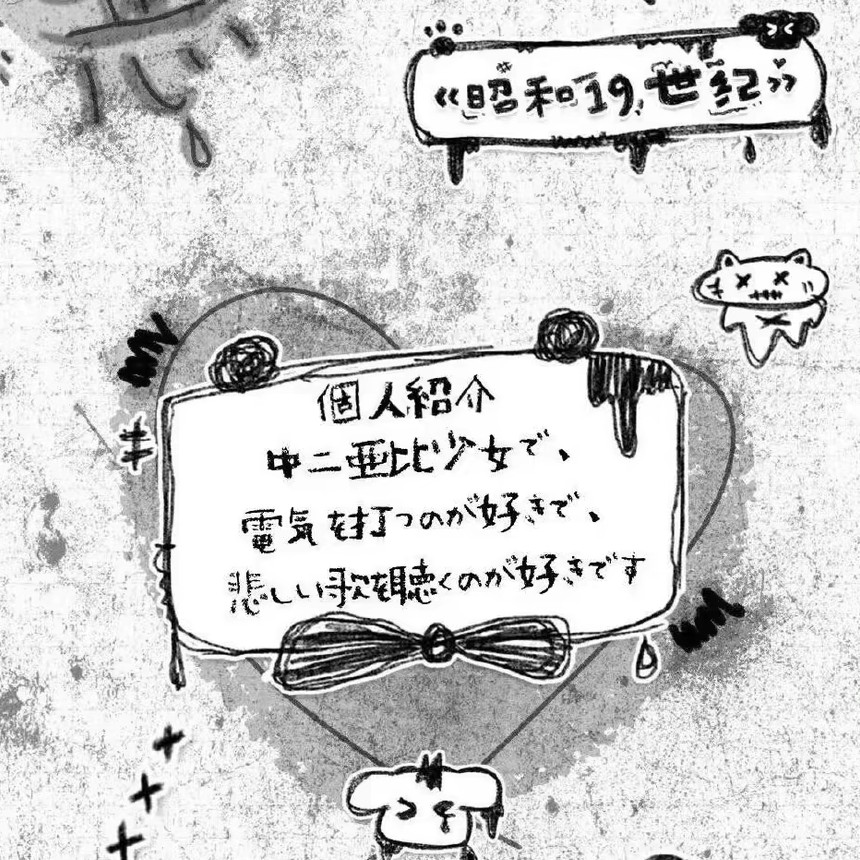 《昭和19,世紀》
個人紹介
中二亜比少女で、
電気を打つのが好きで、
悲しい歌を聴くのが好きです